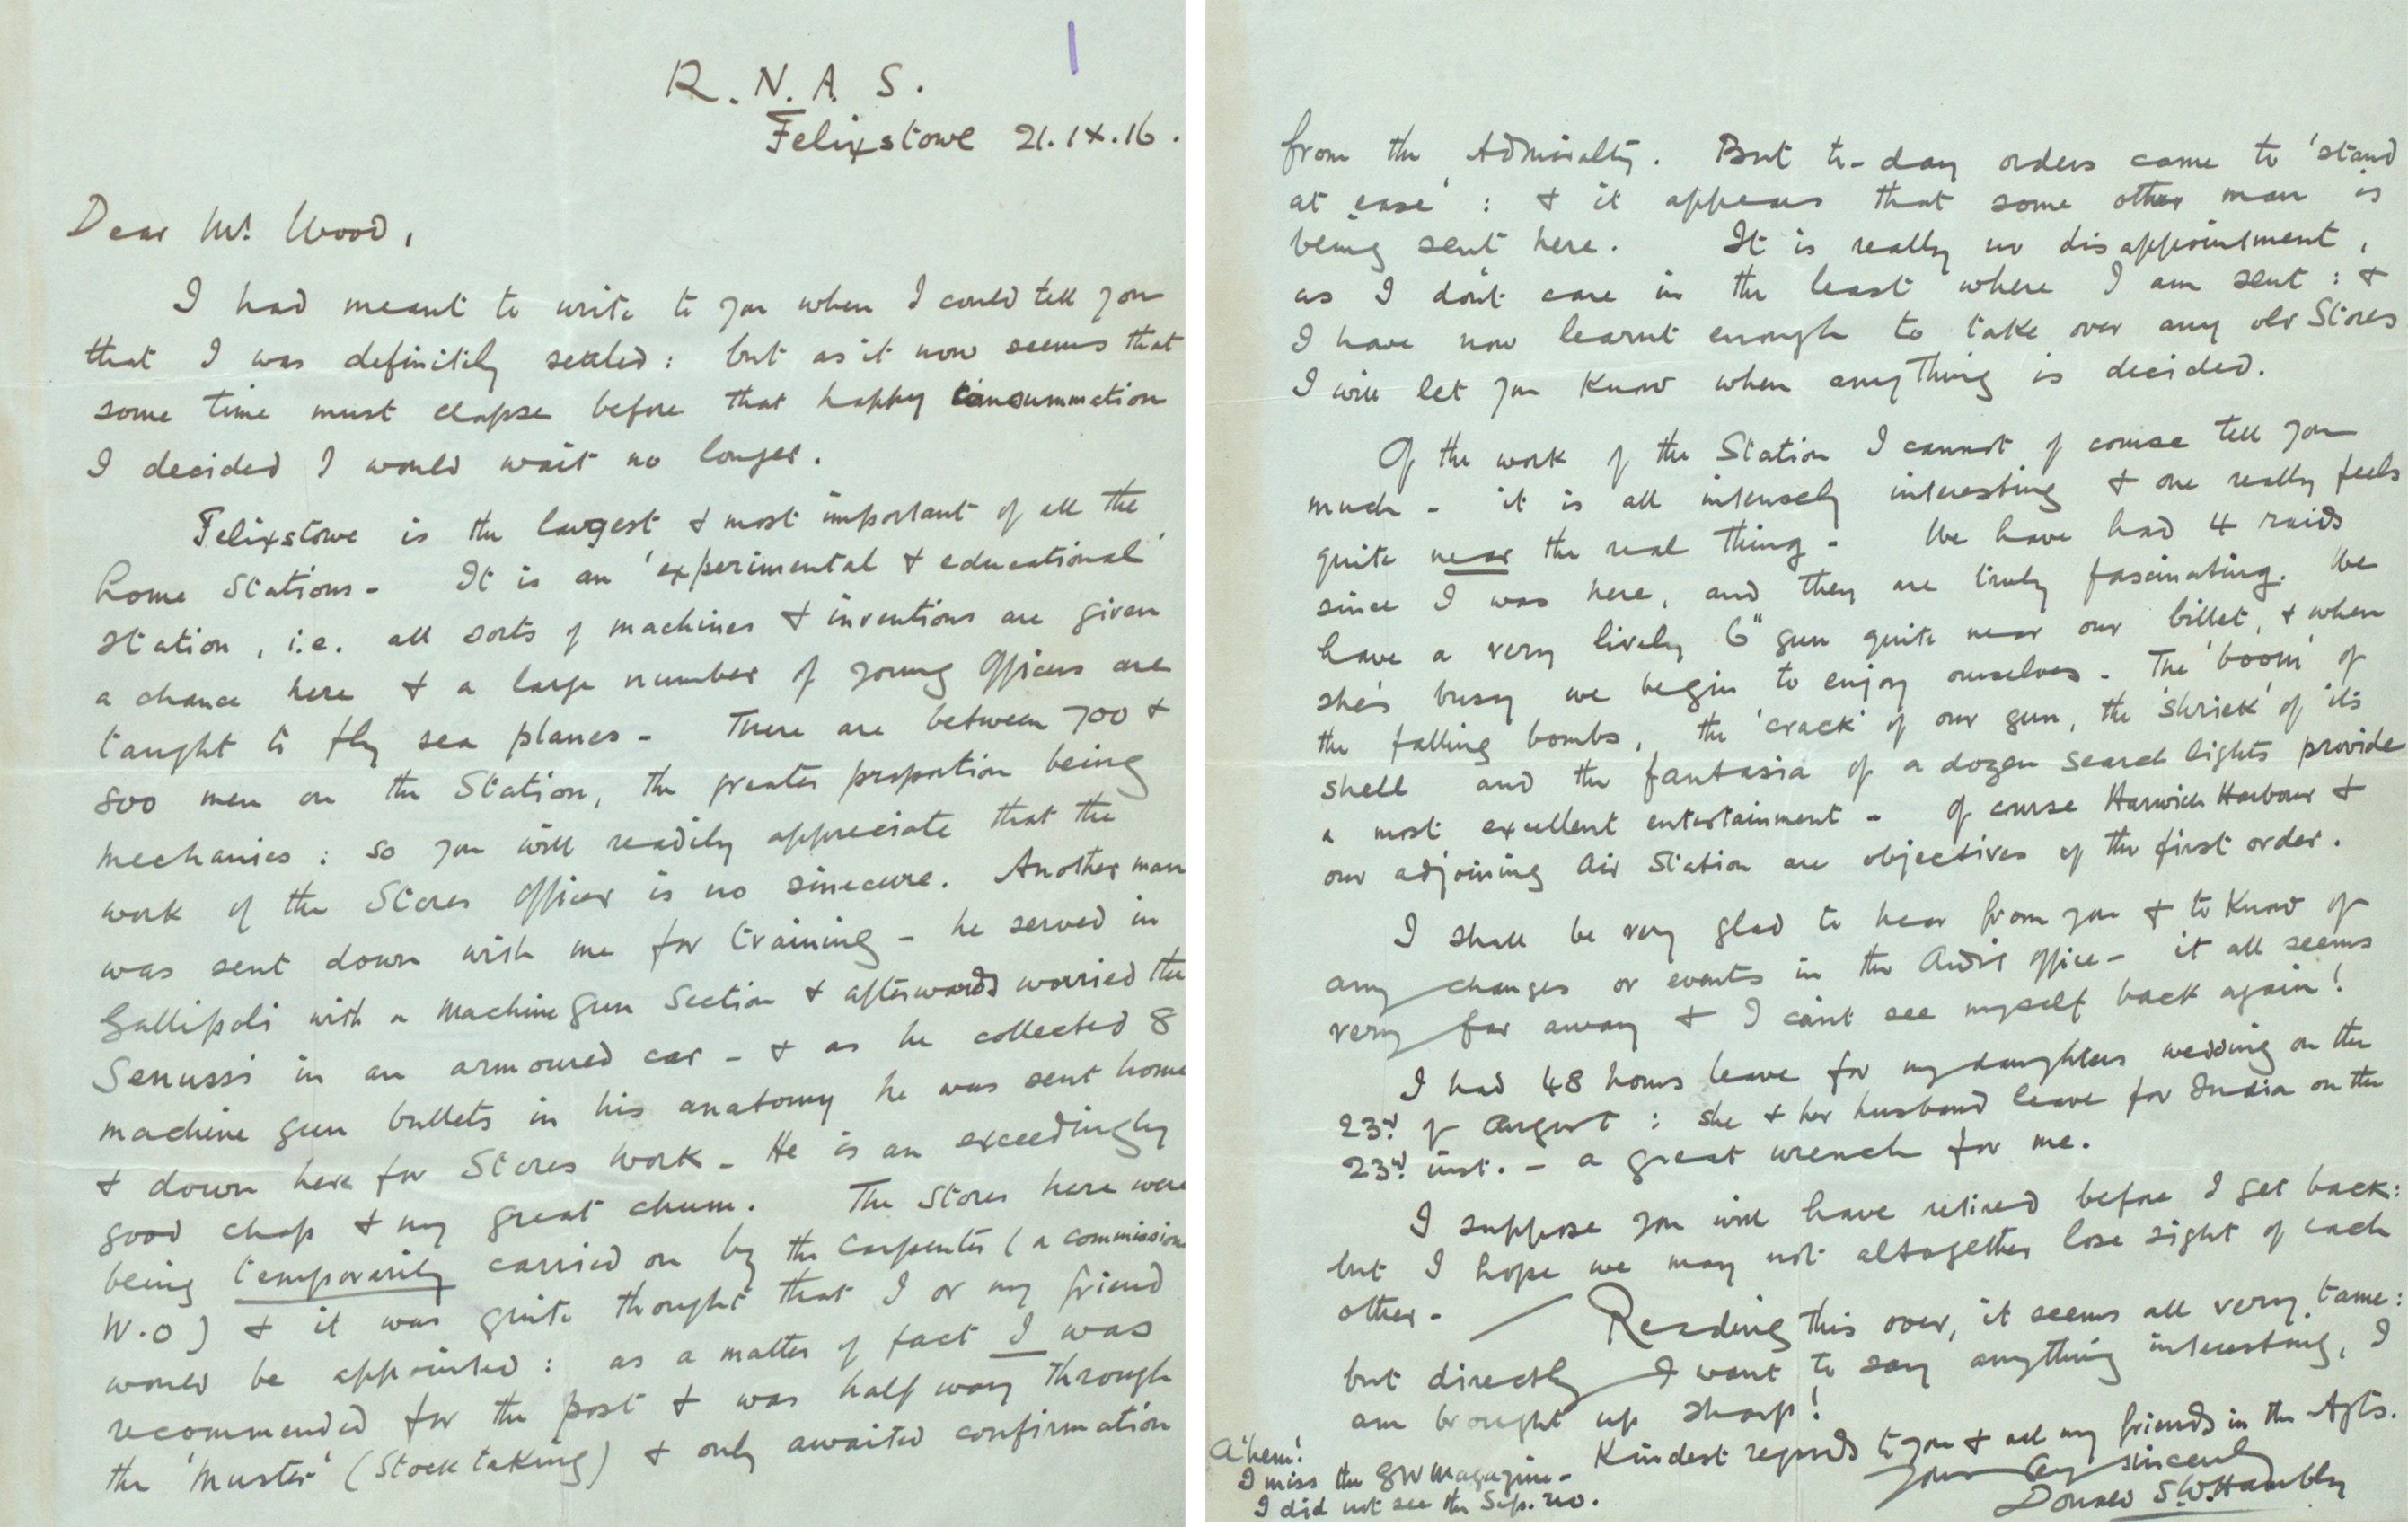 R.N.A.S.
Felixstowe 21.IX.16.
Dear Mr. Wood,
I had meant to write to you when I could tell you
that I was definitely settled: but as it now seems that
some time must elapse before that happy consummation
I decided I would wait no longer.
Felixstowe is the largest & most important of all the
home Stations - It is an 'experimental & educational'
Station, i.e. all sorts of machines & inventions are given
a chance here & a large number of young Officers are
taught to fly sea planes - There are between 700 &
800 men on the Station, the greater proportion being
mechanics: so you will readily appreciate that the
work of the Stores Officer is no sinecure. Another man
was sent down with me for training - he served in
Gallipoli with a Machine Gun Section & afterwards worried the
Senussi in an armoured car - & as he collected 8
machine gun bullets in his anatomy he was sent home
& down here for Stores work - He is an exceedingly
good chap & my great chum. The Stores here were
being temporarily carried on by the Carpenter (a commission
W.O) & it was quite thought that I or my friend
would be appointed: as a matter of fact I was
recommended for the post & was half way through
the 'Muster' (Stock taking) & only awaited confirmation
from the Admiralty. But to-day orders came to 'stand
at ease': & it appears that some other man is
being sent here. It is really no disappointment,
as I don't care in the least where I am sent: &
I have now learnt enough to take over any old Stores
I will let you know when anything is decided.
Of the work of the Station I cannot of course tell you
much - it is all intensely interesting & one really feels
quite near the real thing - We have had 4 raids
since I was here, and they are truly fascinating. We
have a very lively 6" gun quite near our billet, & when
she's busy we begin to enjoy ourselves - The 'boom' of
the falling bombs, the 'crack' of our gun, the 'shriek' of its
shell and the fantasia of a dozen search lights provide
a most excellent entertainment - Of course Harwich Harbour &
our adjoining Air Station are objectives of the first order.
I shall be very glad to hear from you & to know of
any changes or events in the Audit Office - it all seems
very far away & I can't see myself back again!
I had 48 hours leave for my daughters wedding on the
23rd of August: she & her husband leave for India on the
23rd inst. - a great wrench for me.
I suppose you will have retired before I get back:
but I hope we may not altogether lose sight of each
other - Reading this over, it seems all very tame:
but directly I want to say anything interesting, I
am brought up sharp!
Kindest regards to you & all my friends in the A/cts.
Yours sincerely
Donald S.W. Hambly
A'hem!
I miss the GW Magazine -
I did not see the Sep. no.